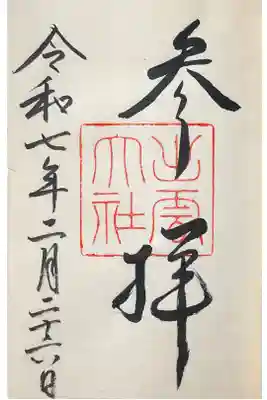 参拝
出雲
大社
令和七年二月二十六日